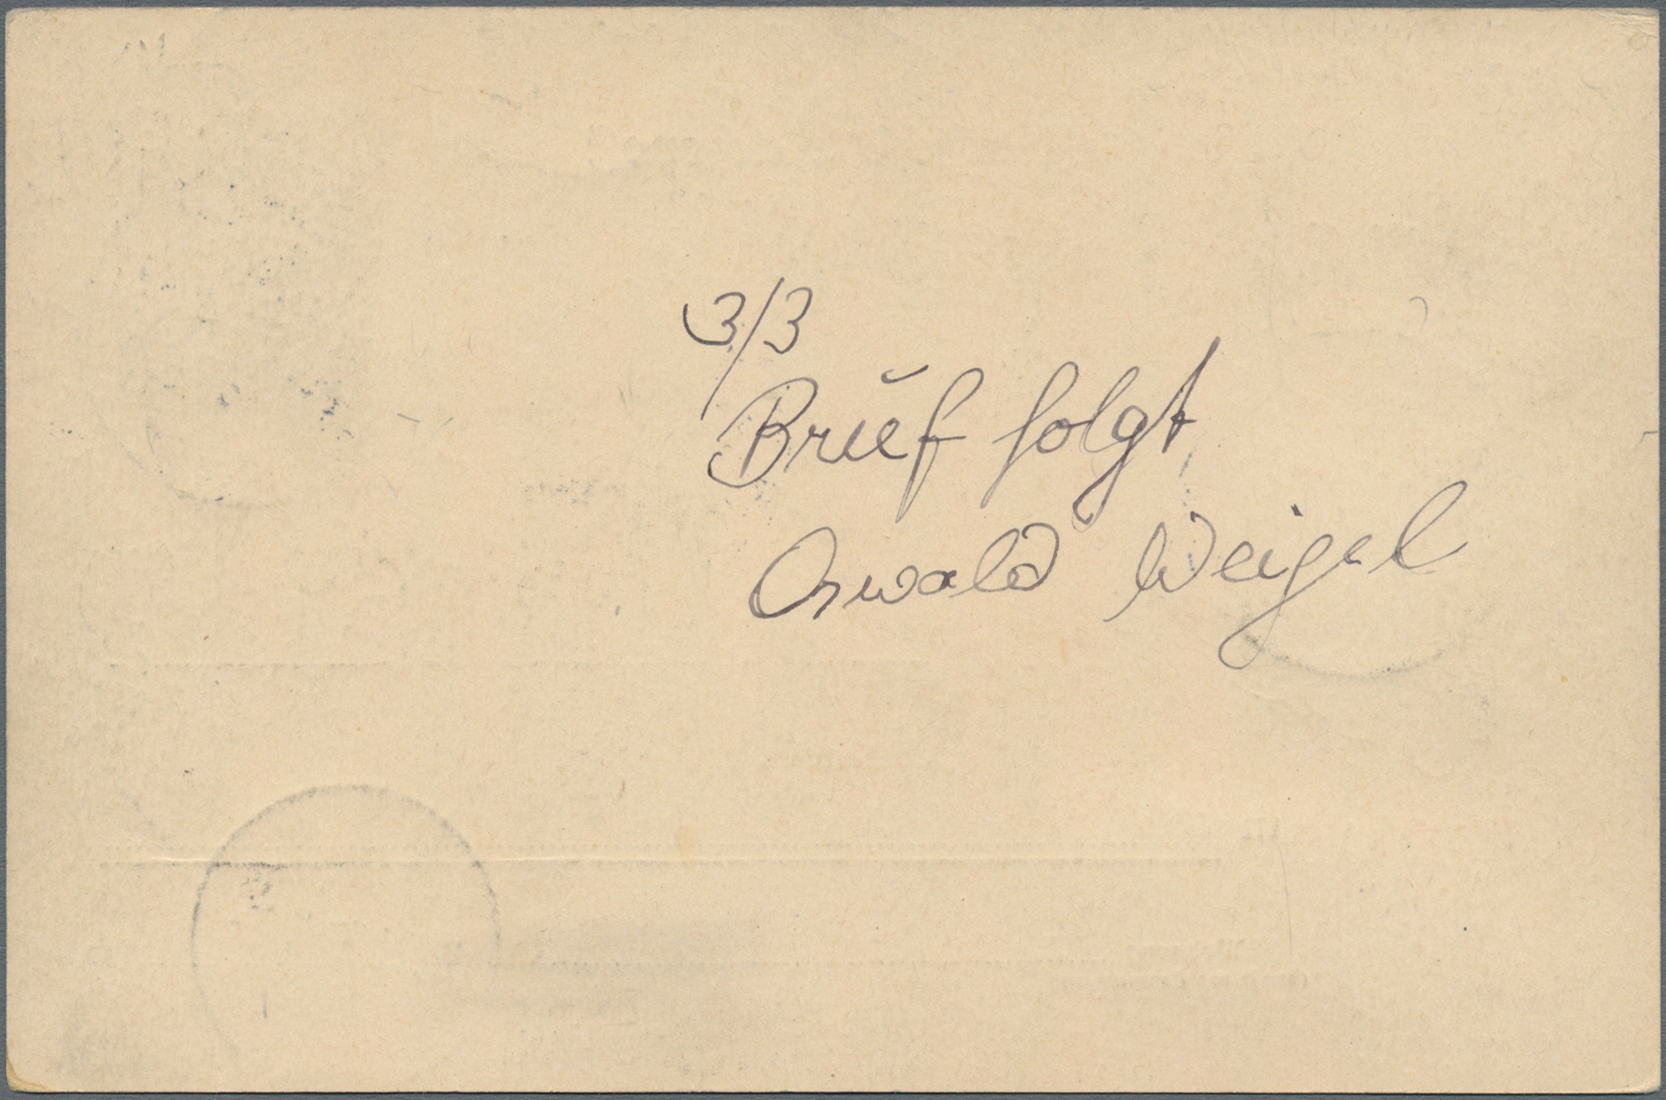 3/3
Brief folgt
Oswald Weigel